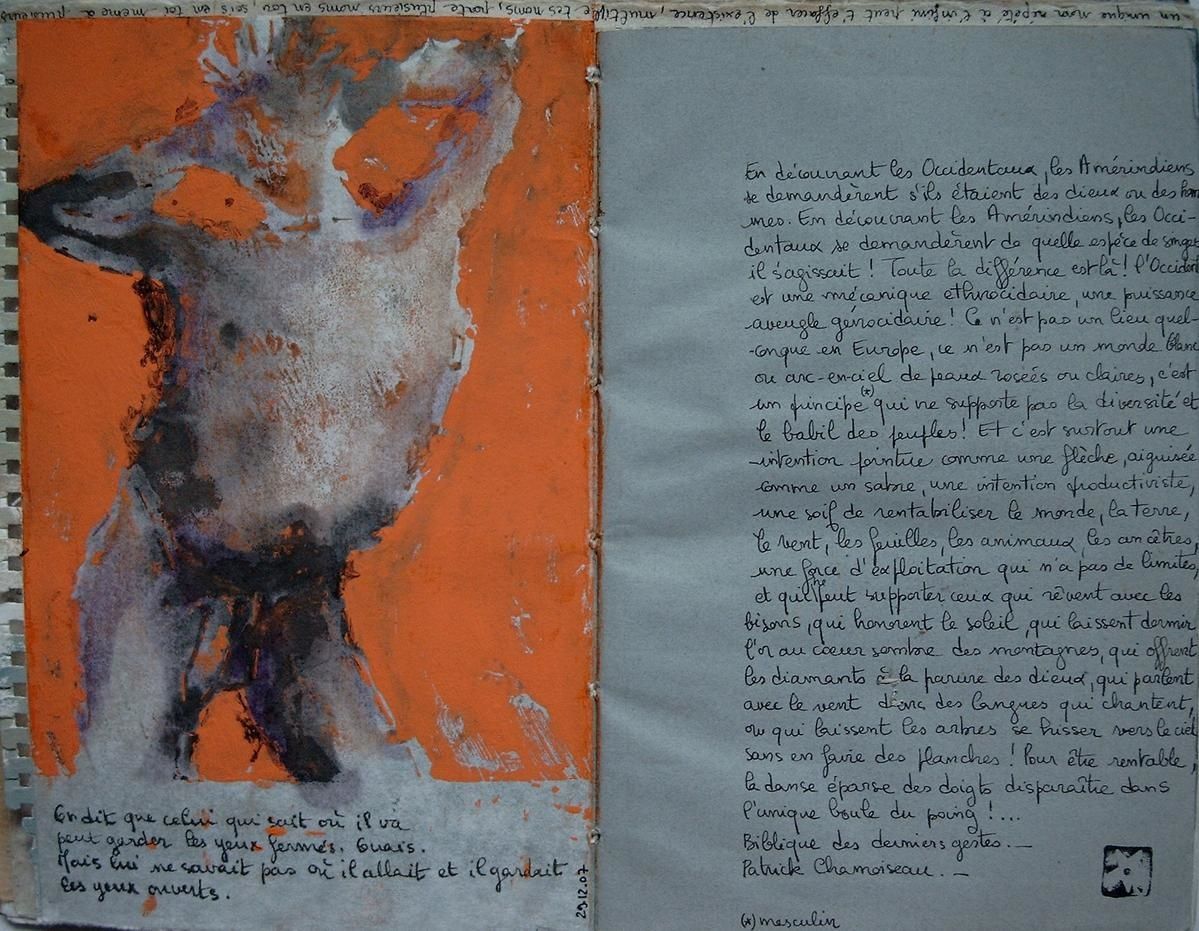 un unique nom répété à l'infini peut t'effacer de l'existence, multiplie tes noms, porte plusieurs noms en toi, sois en toi-même à plusieurs
En découvrant les Occidentaux, les Amérindiens
se demandèrent s'ils étaient des dieux ou des hom
mes. En découvrant les Amérindiens, les Occi-
dentaux se demandèrent de quelle espèce de singes
il s'agissait ! Toute la différence est là ! l'Occident
est une mécanique ethnocidaire, une puissance
aveugle génocidaire ! Ce n'est pas un lieu quel-
-conque en Europe, ce n'est pas un monde blanc
ou arc-en-ciel de peaux rosées ou claires, c'est
un principe (*) qui ne supporte pas la diversité et
le babil des peuples ! Et c'est surtout une
-intention pointue comme une flèche, aiguisée
comme un sabre, une intention productiviste,
une soif de rentabiliser le monde, la terre,
le vent, les feuilles, les animaux, les ancêtres,
une force d'exploitation qui n'a pas de limites,
et qui ne peut supporter ceux qui rêvent avec les
bisons, qui honorent le soleil, qui laissent dormir
l'or au cœur sombre des montagnes, qui offrent
les diamants à la parure des dieux, qui parlent
avec le vent dans des langues qui chantent,
ou qui laissent les arbres se hisser vers le ciel
sans en faire des planches ! Pour être rentable,
la danse éparse des doigts disparaître dans
l'unique boule du poing !...
Biblique des derniers gestes._
Patrick Chamoiseau._
(*) masculin
On dit que celui qui sait où il va
peut garder les yeux fermés. Ouais.
Mais lui ne savait pas où il allait et il gardait
les yeux ouverts.
29.12.07